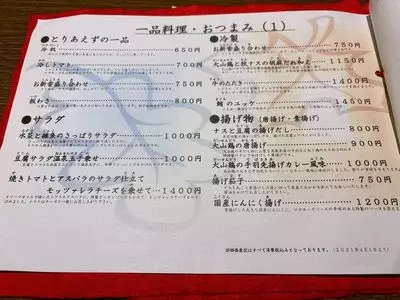 一品料理・おつまみ（1）
●とりあえずの一品
冷奴 650円
冷しトマト 700円
お新香盛り合わせ 750円
板わさ 800円
●サラダ
水菜と雑魚のさっぱりサラダ 1000円
豆腐サラダ温泉玉子乗せ 1000円
焼きトマトとアスパラのサラダ仕立て
モッツァレラチーズを乗せて 1400円
●冷製
お新香盛り合わせ 750円
大山鶏と枝ナスの胡麻だれ和え 1150円
牛のたたき 1400円
鮪のユッケ 1450円
●揚げ物（唐揚げ・素揚げ）
ナスと豆腐の揚げだし 800円
大山鶏の唐揚げ 900円
大山鶏の手羽先揚げカレー風味 1000円
揚げ茄子 750円
国産にんにく揚げ 1200円
※価格表記はすべて消費税込みとなっております。（2021年4月1日より）